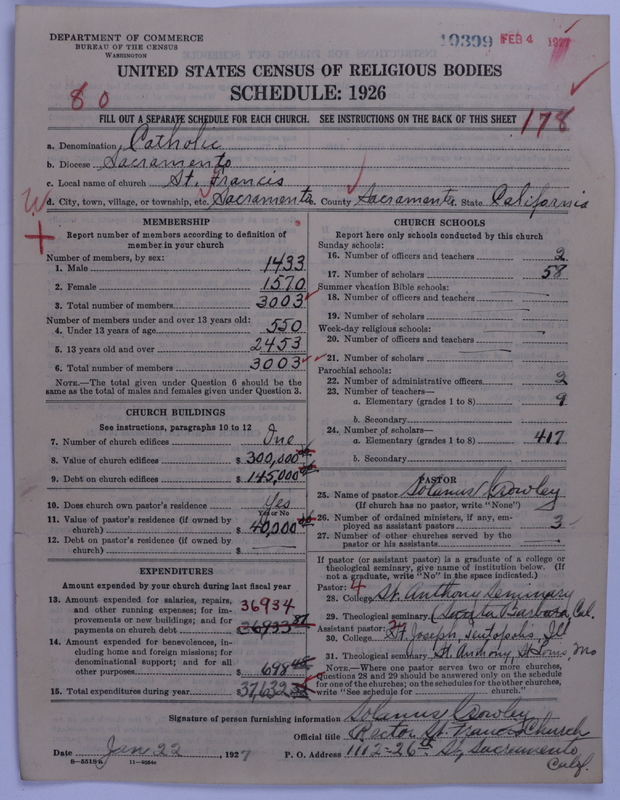 DEPARTMENT OF COMMERCE
BUREAU OF THE CENSUS
WASHINGTON
10399 FEB 4 1927
UNITED STATES CENSUS OF RELIGIOUS BODIES
SCHEDULE: 1926
80
FILL OUT A SEPARATE SCHEDULE FOR EACH CHURCH. SEE INSTRUCTIONS ON THE BACK OF THIS SHEET
178
a. Denomination Catholic
b. Diocese Sacramento
c. Local name of church St. Francis
d. City, town, village, or township, etc. Sacramento County Sacramento State California
MEMBERSHIP
Report number of members according to definition of
member in your church
Number of members, by sex:
1. Male 1433
2. Female 1570
3. Total number of members 3003
Number of members under and over 13 years old:
4. Under 13 years of age 550
5. 13 years old and over 2453
6. Total number of members 3003
NOTE.—The total given under Question 6 should be the
same as the total of males and females given under Question 3.
CHURCH BUILDINGS
See instructions, paragraphs 10 to 12
7. Number of church edifices One
8. Value of church edifices $ 300,000
9. Debt on church edifices $ 145,000
10. Does church own pastor's residence? Yes
Yes or No
11. Value of pastor's residence (if owned by
church) $ 40,000
12. Debt on pastor's residence (if owned by
church) $
EXPENDITURES
Amount expended by your church during last fiscal year
13. Amount expended for salaries, repairs,
and other running expenses; for im-
provements or new buildings; and for
payments on church debt $ 36933 87
36934
14. Amount expended for benevolences, in-
cluding home and foreign missions; for
denominational support; and for all
other purposes $ 698
15. Total expenditures during year $ 37632
CHURCH SCHOOLS
Report here only schools conducted by this church
Sunday schools:
16. Number of officers and teachers 2
17. Number of scholars 58
Summer vacation Bible schools:
18. Number of officers and teachers
19. Number of scholars
Week-day religious schools:
20. Number of officers and teachers
21. Number of scholars
Parochial schools:
22. Number of administrative officers 2
23. Number of teachers—
a. Elementary (grades 1 to 8) 9
b. Secondary
24. Number of scholars—
a. Elementary (grades 1 to 8) 417
b. Secondary
PASTOR
25. Name of pastor Solanus Crowley
(If church has no pastor, write "None")
26. Number of ordained ministers, if any, em-
ployed as assistant pastors 3
27. Number of other churches served by the
pastor or his assistants
If pastor (or assistant pastor) is a graduate of a college or
theological seminary, give name of institution below. (If
not a graduate, write "No" in the space indicated.)
Pastor: 4
28. College St. Anthony Seminary
29. Theological seminary (Santa Barbara, Cal.
Assistant pastor:
30. College St. Joseph, Teutopolis, Ill
31. Theological seminary St. Anthony, St Louis, Mo
NOTE.—Where one pastor serves two or more churches,
Questions 28 and 29 should be answered only on the schedule
for one of the churches; on the schedules for the other churches,
write "See schedule for church."
Signature of person furnishing information Solanus Crowley
Official title Rector St. Francis Church
Date Jan 22, 1927 P. O. Address 1112-26th St, Sacramento
Calif.
8-5518a 11-9264c